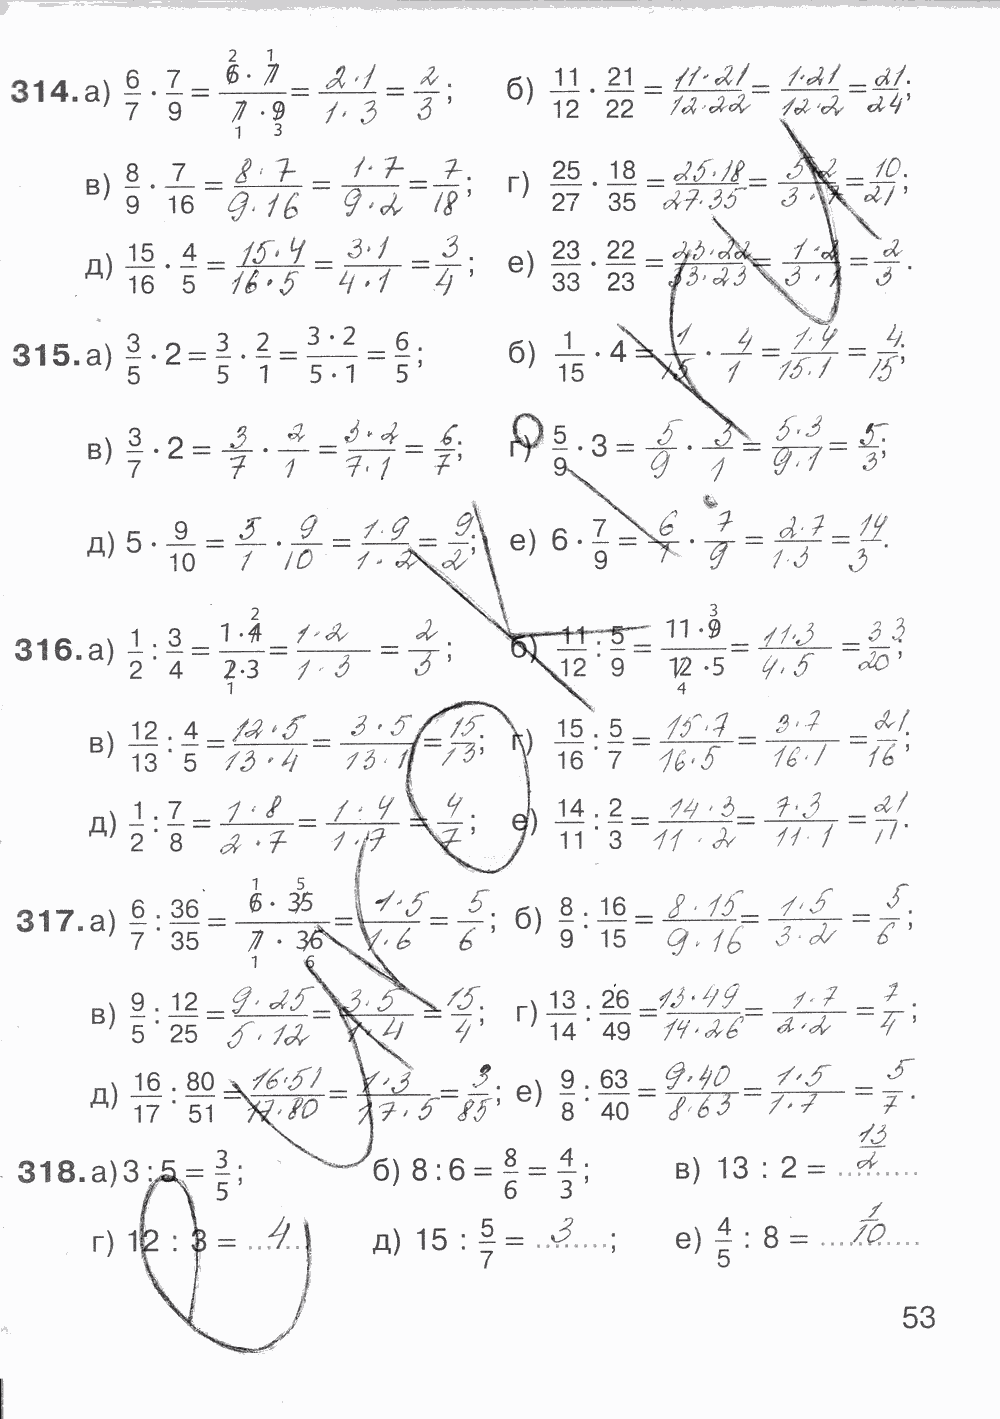 314. а) 6/7 · 7/9 = (6 · 7)/(7 · 9) = (2 · 1)/(1 · 3) = 2/3; б) 11/12 · 21/22 = (11 · 21)/(12 · 22) = (1 · 21)/(12 · 2) = 21/24;
в) 8/9 · 7/16 = (8 · 7)/(9 · 16) = (1 · 7)/(9 · 2) = 7/18; г) 25/27 · 18/35 = (25 · 18)/(27 · 35) = (5 · 2)/(3 · 7) = 10/21;
д) 15/16 · 4/5 = (15 · 4)/(16 · 5) = (3 · 1)/(4 · 1) = 3/4; е) 23/33 · 22/23 = (23 · 22)/(33 · 23) = (1 · 2)/(3 · 1) = 2/3.
315. а) 3/5 · 2 = 3/5 · 2/1 = (3 · 2)/(5 · 1) = 6/5; б) 1/15 · 4 = 1/15 · 4/1 = (1 · 4)/(15 · 1) = 4/15;
в) 3/7 · 2 = 3/7 · 2/1 = (3 · 2)/(7 · 1) = 6/7; г) 5/9 · 3 = 5/9 · 3/1 = (5 · 3)/(9 · 1) = 5/3;
д) 5 · 9/10 = 5/1 · 9/10 = (1 · 9)/(1 · 2) = 9/2; е) 6 · 7/9 = 6/1 · 7/9 = (2 · 7)/(1 · 3) = 14/3.
316. а) 1/2 : 3/4 = (1 · 4)/(2 · 3) = (1 · 2)/(1 · 3) = 2/3; б) 11/12 : 5/9 = (11 · 9)/(12 · 5) = (11 · 3)/(4 · 5) = 33/20;
в) 12/13 : 4/5 = (12 · 5)/(13 · 4) = (3 · 5)/(13 · 1) = 15/13; г) 15/16 : 5/7 = (15 · 7)/(16 · 5) = (3 · 7)/(16 · 1) = 21/16;
д) 1/2 : 7/8 = (1 · 8)/(2 · 7) = (1 · 4)/(1 · 7) = 4/7; е) 14/11 : 2/3 = (14 · 3)/(11 · 2) = (7 · 3)/(11 · 1) = 21/11.
317. а) 6/7 : 36/35 = (6 · 35)/(7 · 36) = (1 · 5)/(1 · 6) = 5/6; б) 8/9 : 16/15 = (8 · 15)/(9 · 16) = (1 · 5)/(3 · 2) = 5/6;
в) 9/5 : 12/25 = (9 · 25)/(5 · 12) = (3 · 5)/(1 · 4) = 15/4; г) 13/14 : 26/49 = (13 · 49)/(14 · 26) = (1 · 7)/(2 · 2) = 7/4;
д) 16/17 : 80/51 = (16 · 51)/(17 · 80) = (1 · 3)/(17 · 5) = 3/85; е) 9/8 : 63/40 = (9 · 40)/(8 · 63) = (1 · 5)/(1 · 7) = 5/7.
318. а) 3 : 5 = 3/5; б) 8 : 6 = 8/6 = 4/3; в) 13 : 2 = 13/2
г) 12 : 3 = 4 д) 15 : 5/7 = 3; е) 4/5 : 8 = 1/10
53